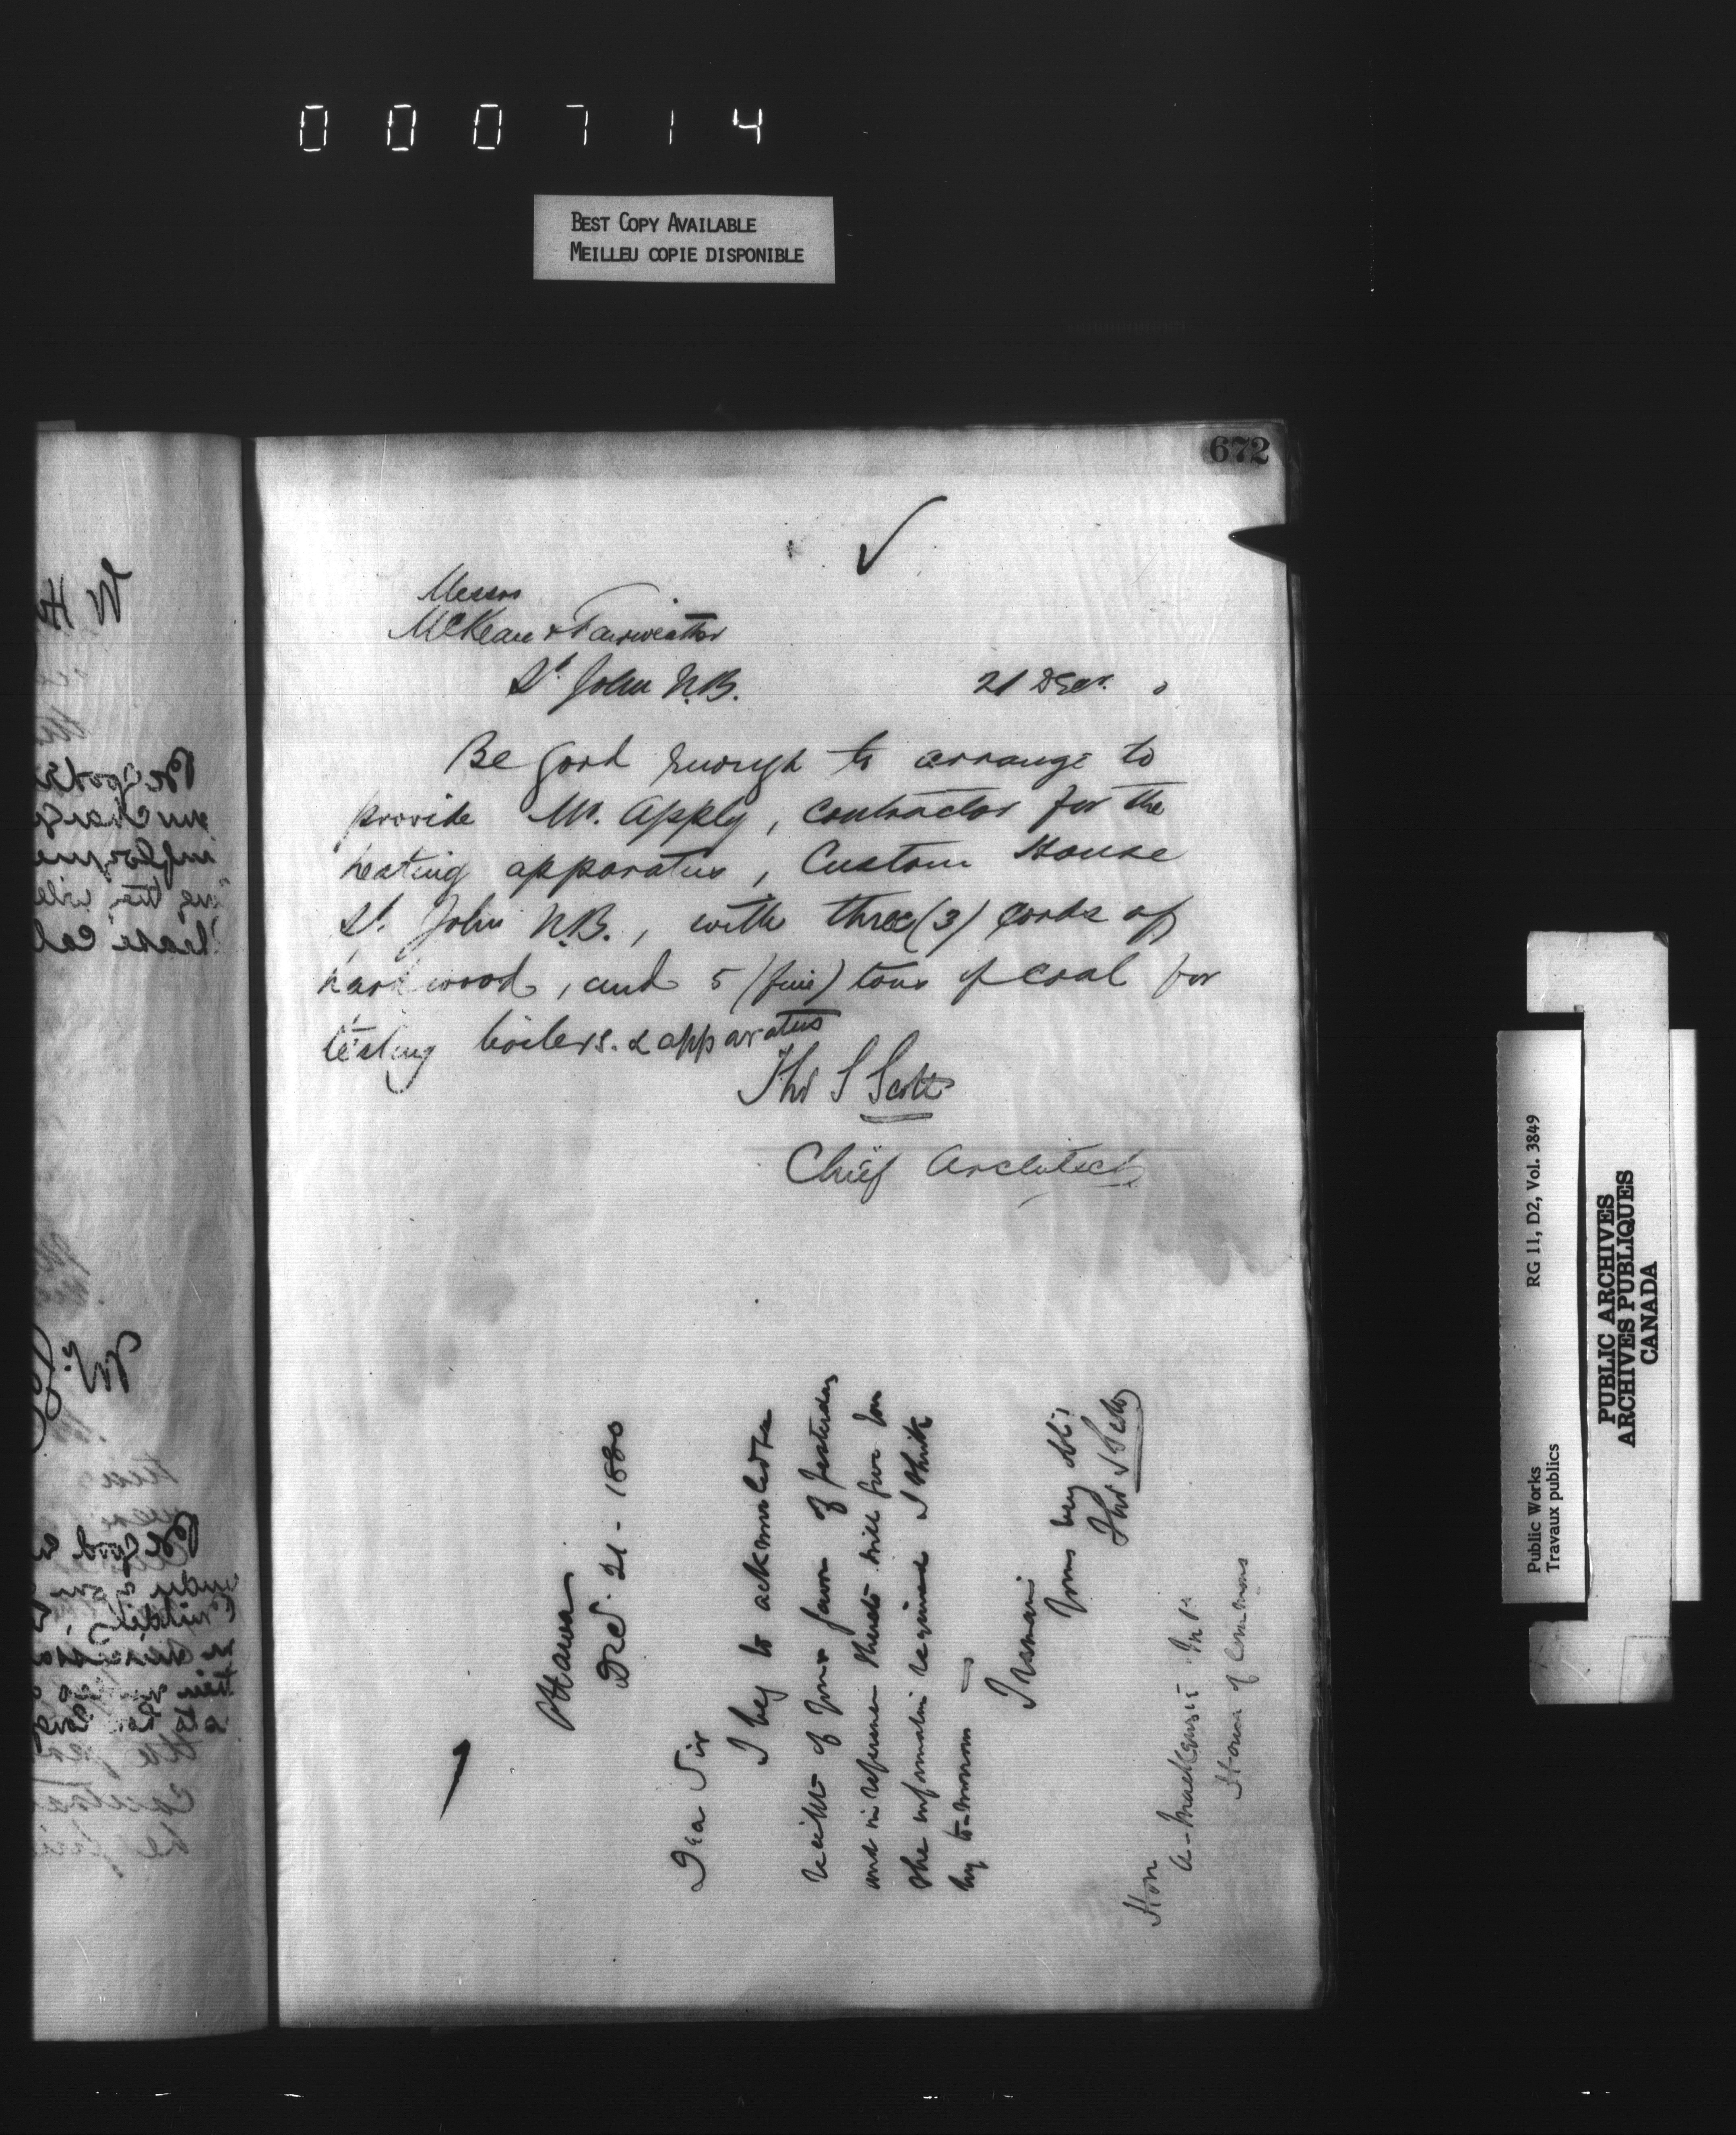 000714
BEST COPY AVAILABLE
MEILLEU COPIE DISPONIBLE
672
Messrs
McKean & Fairweather
St. John N.B.
21 Decr. 0
Be good enough to arrange to
provide Mr. Apply, contractor for the
heating apparatus, Custom House
St. John N.B., with three (3) cords of
hard wood, and 5 (five) tons of coal for
testing boilers. & apparatus
Thos S Scott
Chief Architect
Ottawa
Dec. 21 - 1880
Dea Sir
I beg to acknowledge
receipt of your favor of yesterday
and in reference thereto will give you
the information required I think
by to-morrow
I remain
Yours very obt.
Thos S Scott
Hon
A. Mackenzie M.P.
House of Commons
Public Works
Travaux publics
RG 11, D2, Vol. 3849
PUBLIC ARCHIVES
ARCHIVES PUBLIQUES
CANADA